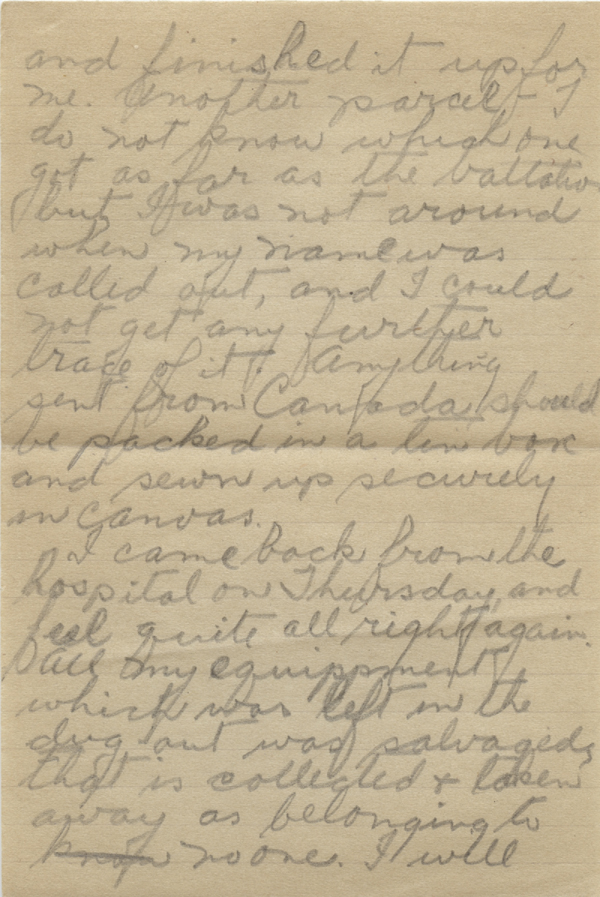 and finished it up for
me. Another parcel – I
do not know which one
got as far as the battalion
but I was not around
when my name was
called out, and I could
not get any further
trace of it. Anything
sent from Canada should
be packed in a tin box
and sewn up securely
in canvas.
I came back from the
hospital on Thursday, and
feel quite all right again.
All my equippment
which was left in the
dug out was salvaged,
that is collected + taken
away as belonging to
know no one. I will